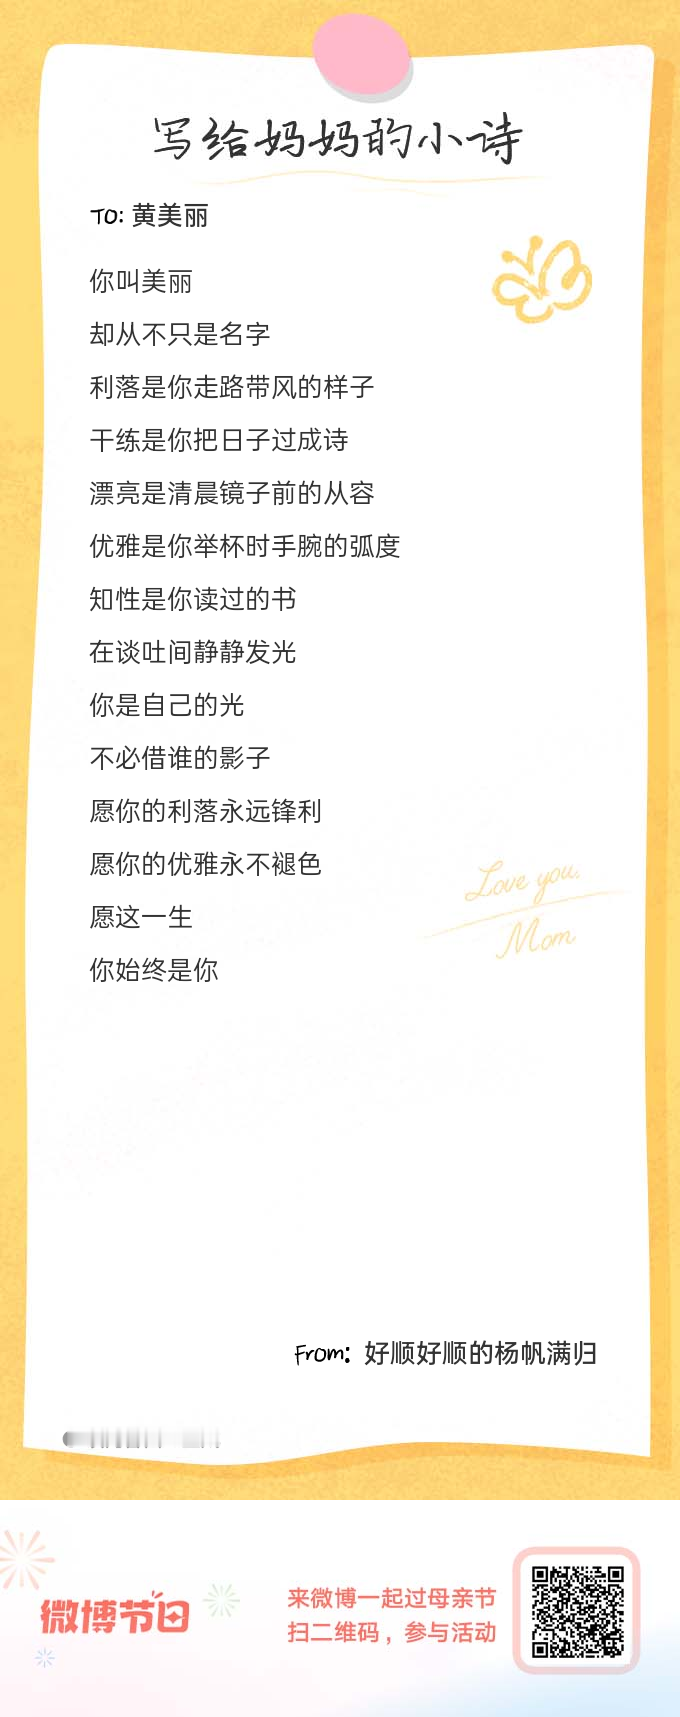 写给妈妈的小诗
TO: 黄美丽
你叫美丽
却从不只是名字
利落是你走路带风的样子
干练是你把日子过成诗
漂亮是清晨镜子前的从容
优雅是你举杯时手腕的弧度
知性是你读过的书
在谈吐间静静发光
你是自己的光
不必借谁的影子
愿你的利落永远锋利
愿你的优雅永不褪色
愿这一生
你始终是你
Love you,
Mom
From: 好顺好顺的杨帆满归
微博节日
来微博一起过母亲节
扫二维码，参与活动